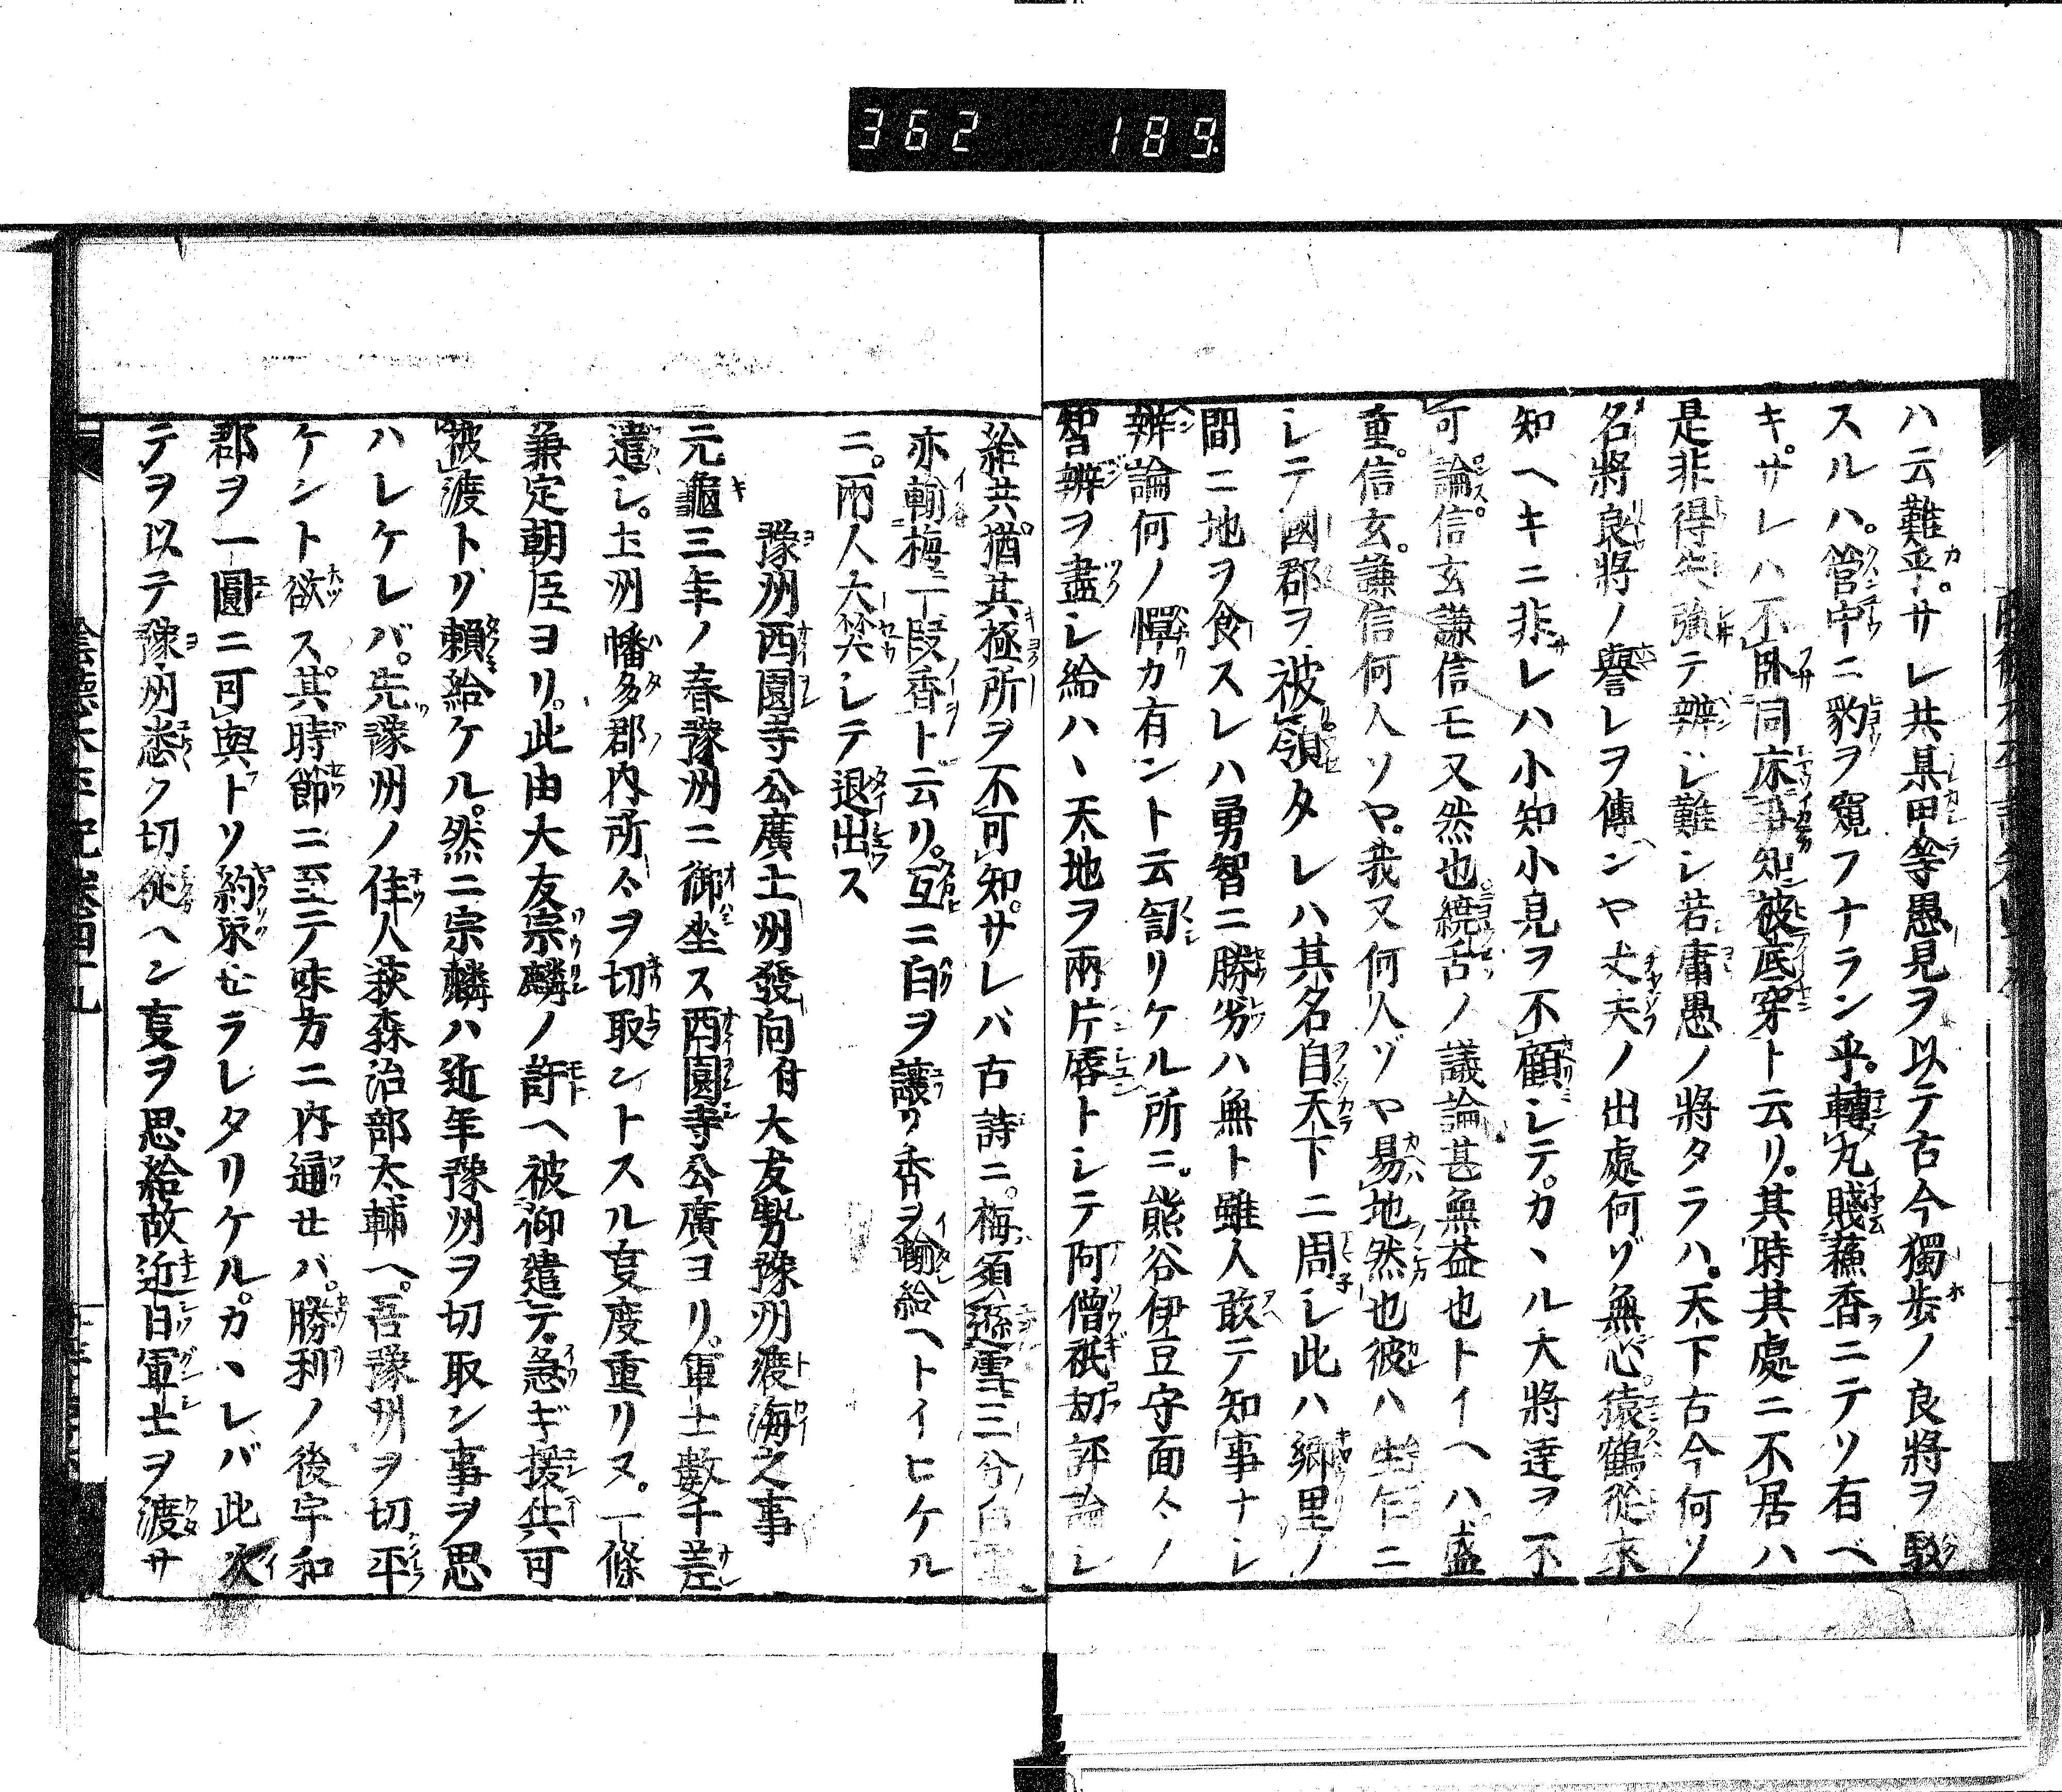 362 189
ハ云難乎。サレ共某甲等愚見ヲ以テ古今獨歩ノ良將ヲ駁
スルハ。管中ニ豹ヲ窺フナラン乎。轉丸賤蘓香ニテソ有ベ
キ。サレハ不臥同床知被底穿ト云リ。其時其處ニ不居ハ
是非得失強テ辨シ難シ若庸愚ノ將タラハ。天下古今何ソ
名將良將ノ譽レヲ傳ンヤ丈夫ノ出處何ゾ無心。猿鶴從來
知ヘキニ非レハ小知小見ヲ不顧シテ。カヽル大將達ヲ不
可論。信玄謙信モ又然也繞舌ノ議論甚無益也トイヘハ盛
重。信玄。謙信何人ソヤ。我又何人ゾヤ易地然也彼ハ生乍ニ
シテ國郡ヲ被領タレハ其名自天下ニ周シ此ハ郷里ノ
間ニ地ヲ食スレハ勇智ニ勝劣ハ無ト雖人敢テ知事ナシ
辨論何ノ憚カ有ント云訇リケル所ニ。熊谷伊豆守面々ノ
智辨ヲ盡シ給ハヽ天地ヲ兩片唇トシテ阿僧祇劫評論シ
給共。猶其極所ヲ不可知。サレバ古詩ニ。梅須遜雪三分白雪
亦輸梅一段香ト云リ。互ニ白ヲ讓リ香ヲ輸給ヘトイヒケル
ニ。兩人大笑シテ退出ス
豫州西園寺公廣土州發向付大友勢豫州渡海之事
元龜三年ノ春豫州ニ御坐ス西園寺公廣ヨリ。軍士數千差
遣シ。土州幡多郡内所々ヲ切取ントスル叓度重リヌ。一條
兼定朝臣ヨリ。此由大友宗麟ノ許ヘ被仰遣テ。急ギ援共可
被渡トリ頼給ケル。然ニ宗麟ハ近年豫州ヲ切取ン事ヲ思
ハレケレバ。先豫州ノ住人萩森治部太輔ヘ。吾豫州ヲ切平
ケント欲ス。其時節ニ至テ味方ニ内通セバ。勝利ノ後宇和
郡ヲ一圓ニ可與トソ約束セラレタリケル。カヽレバ此次
テヲ以テ豫州悉ク切從ヘン叓ヲ思給故近日軍士ヲ渡サ